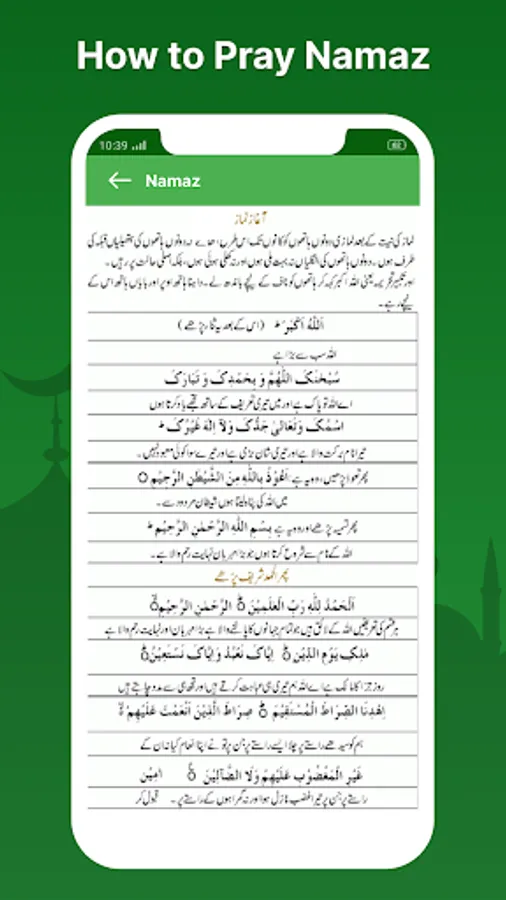 How to Pray Namaz
10:39
Namaz
آغاز نماز
نماز کی نیت کے بعد نمازی دونوں ہاتھوں کو کانوں تک اس طرح اٹھائے کہ دونوں ہاتھوں کی ہتھیلیاں قبلہ کی
طرف ہوں۔ دونوں ہاتھوں کی انگلیاں نہ بہت ملی ہوں اور نہ کھلی ہوئی ہوں، بلکہ اصلی حالت پر رہیں۔
اور تکبیر تحریمہ یعنی اللہ اکبر کہہ کر ہاتھوں کو ناف کے نیچے باندھ لے۔ داہنا ہاتھ اوپر اور بایاں ہاتھ اس کے
نیچے رہے۔
اَللّٰهُ اَکْبَرْ ؕ (اس کے بعد یہ ثناء پڑھے)
اللہ سب سے بڑا ہے
سُبْحٰنَکَ اللّٰهُمَّ وَ بِحَمْدِکَ وَ تَبَارَکَ
اے اللہ تو پاک ہے اور میں تیری تعریف کے ساتھ تجھے یاد کرتا ہوں
اسْمُکَ وَتَعَالٰی جَدُّکَ وَلَآ اِلٰهَ غَیْرُکَ ؕ
تیرا نام برکت والا ہے اور تیری شان بڑی ہے اور تیرے سوا کوئی معبود نہیں۔
پھر تعوذ پڑھیں، وہ یہ ہے: اَعُوْذُ بِاللّٰهِ مِنَ الشَّیْطٰنِ الرَّجِیْمِ ○
میں اللہ کی پناہ لیتا ہوں شیطان مردود سے۔
پھر تسمیہ پڑھے اور وہ یہ ہے بِسْمِ اللّٰهِ الرَّحْمٰنِ الرَّحِیْمِ ؕ
اللہ کے نام سے شروع کرتا ہوں جو بڑا مہربان نہایت رحم والا ہے۔
پھر الحمد شریف پڑھے
اَلْحَمْدُ لِلّٰهِ رَبِّ الْعٰلَمِیْنَ ۙ الرَّحْمٰنِ الرَّحِیْمِ ۙ
ہر قسم کی تعریفیں اللہ کے لائق ہیں جو تمام جہانوں کا پالنے والا ہے بڑا مہربان اور نہایت رحم والا ہے
مٰلِکِ یَوْمِ الدِّیْنِ ؕ اِیَّاکَ نَعْبُدُ وَاِیَّاکَ نَسْتَعِیْنُ ؕ
روز جزا کا مالک ہے اے اللہ ہم تیری ہی عبادت کرتے ہیں اور تجھ ہی سے مدد چاہتے ہیں
اِهْدِنَا الصِّرَاطَ الْمُسْتَقِیْمَ ۙ صِرَاطَ الَّذِیْنَ اَنْعَمْتَ عَلَیْهِمْ ۙ
ہم کو سیدھے راستے پر چلا ایسے راستے پر جن پر تو نے اپنا انعام کیا نہ ان کے
غَیْرِ الْمَغْضُوْبِ عَلَیْهِمْ وَلَا الضَّآلِّیْنَ ۠ اٰمِیْن
راستے پر جن پر تیرا غضب نازل ہوا اور نہ گمراہوں کے راستے پر۔ قبول کر